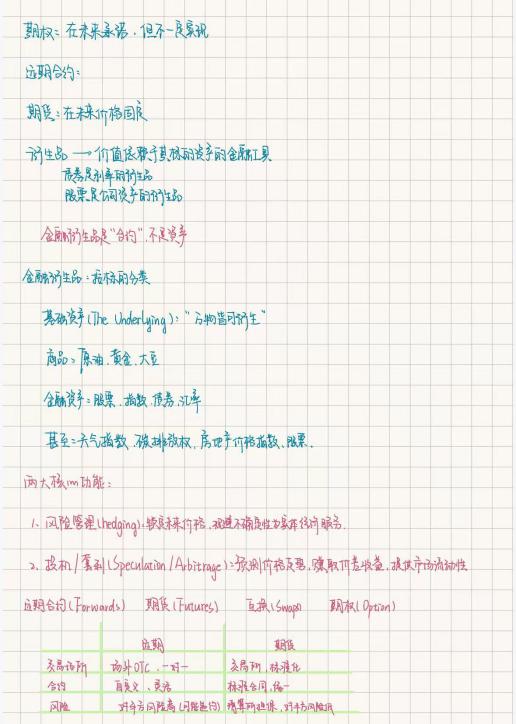 期权：在未来承诺，但不一定实现
远期合约：
期货：在未来价格固定
衍生品 → 价值依赖于其标的资产的金融工具
债券是利率的衍生品
股票是公司资产的衍生品
金融衍生品是“合约”，不是资产
金融衍生品：按标的分类
基础资产(The Underlying)：“万物皆可衍生”
商品：原油、黄金、大豆
金融资产：股票、指数、债券、汇率
甚至：天气指数、碳排放权、房地产价格指数、股票.
两大核心功能：
1、风险管理(hedging)：锁定未来价格，规避不确定性为实体经济服务.
2、投机/套利(Speculation/Arbitrage)：预测价格走势，赚取价差收益，提供市场流动性
远期合约(Forwards) 期货(Futures) 互换(Swap) 期权(Option)
远期 期货
交易场所 场外OTC、一对一 交易所，标准化
合约 自定义、灵活 标准合同，统一
风险 对手方风险高(可能违约) 清算所担保，对手方风险低